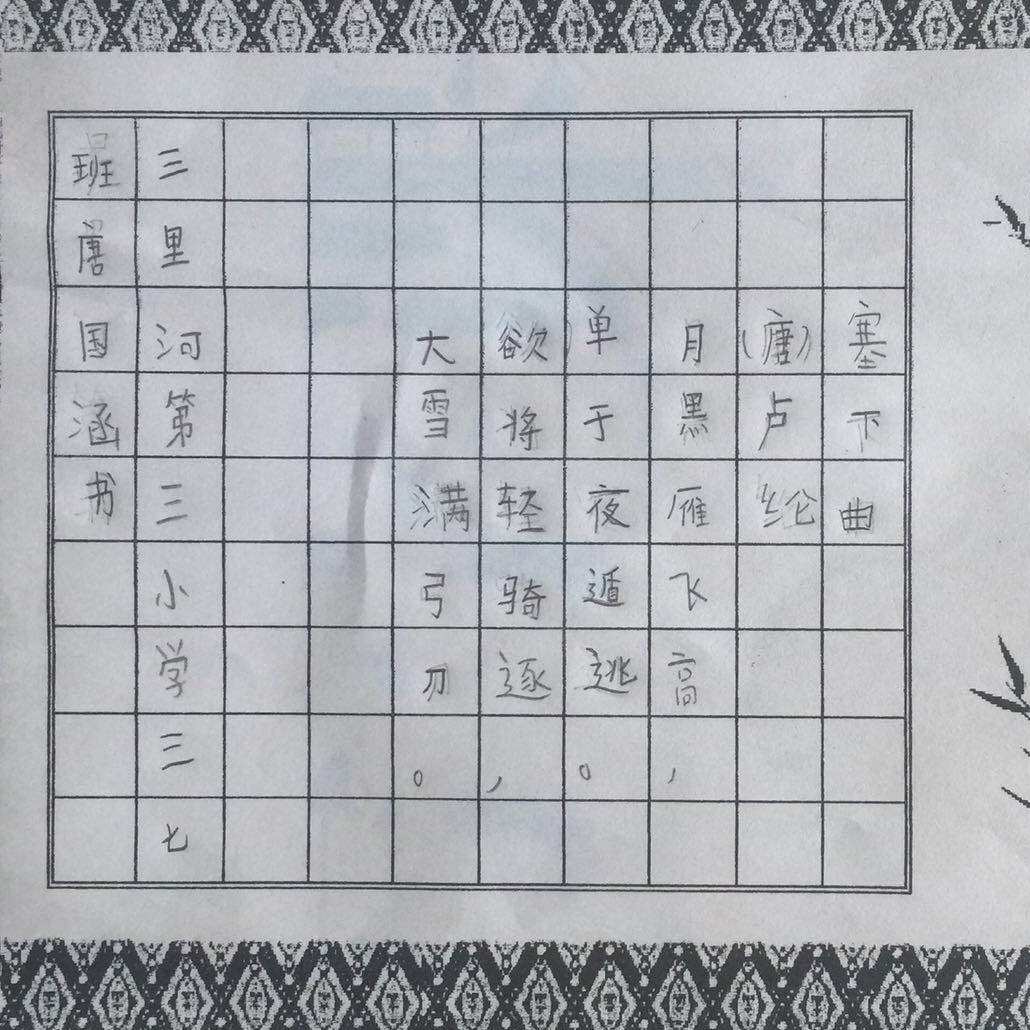 塞下曲
(唐)卢纶
月黑雁飞高,
单于夜遁逃。
欲将轻骑逐,
大雪满弓刀。
三里河第三小学三七
班唐国涵书